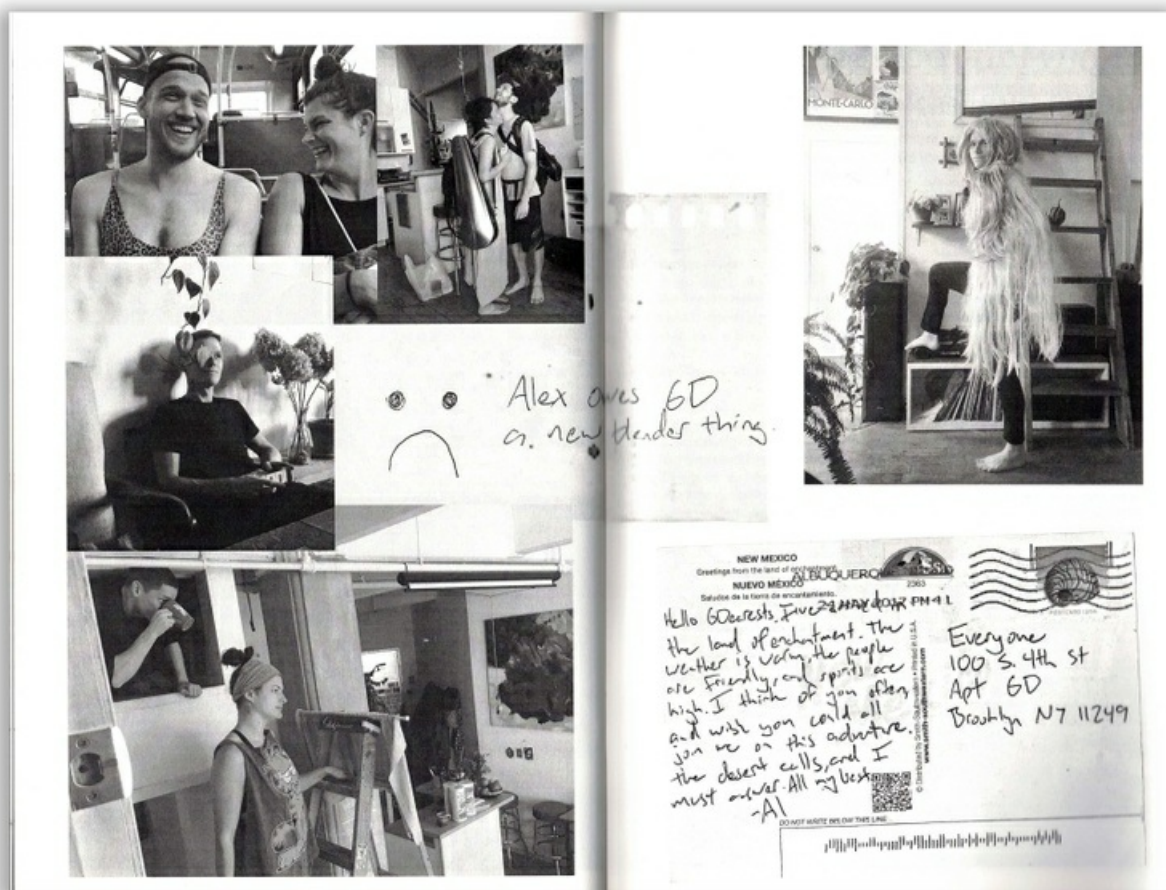 MONTE-CARLO
Alex owes 6D
a new blender thing.
NEW MEXICO
Greetings from the land of enchantment.
NUEVO MÉXICO
Saludos de la tierra de encantamiento.
ALBUQUERQ
22 MAY 2017 PM 4 L
Hello 6Dearests, I've
the land of enchantment. The
weather is warm, the people
are friendly, and spirits are
high. I think of you often,
and wish you could all
join me on this adventure.
the desert calls, and I
must answer. All my best
-Al
© Distributed by Smith-Southwestern • Printed in U.S.A.
www.smith-southwestern.com
Everyone
100 S. 4th St
Apt 6D
Brooklyn NY 11249
DO NOT WRITE BELOW THIS LINE